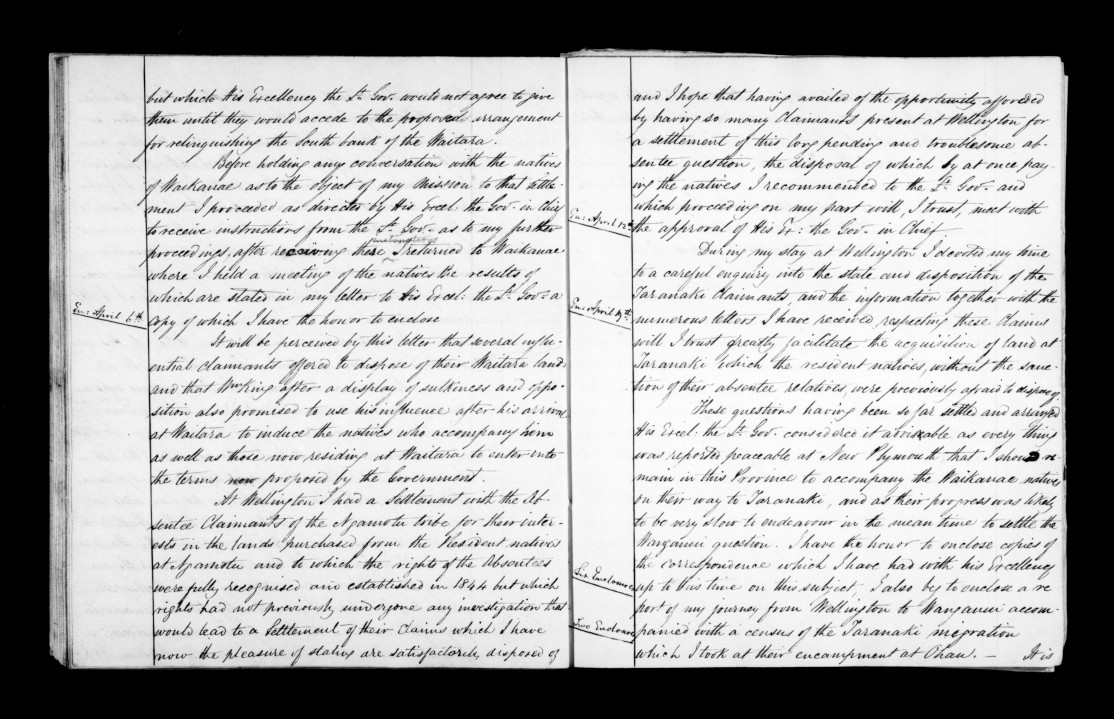 but which His Excellency the Lt. Gov. would not agree to give
them until they would accede to the proposed arrangement
for relinquishing the South bank of the Waitara.
Before holding any conversation with the natives
of Waikanae as to the object of my mission to that settle-
ment I proceeded as directed by His Excel: the Gov. in Chief
to receive instructions from the Lt. Gov. as to my further
proceedings, after receiving these instructions I returned to Waikanae
where I held a meeting of the natives the results of
which are stated in my letter to His Excel: the Lt. Gov. a
En: April 6th
copy of which I have the honor to enclose
It will be perceived by this letter that several influ-
ential claimants offered to dispose of their Waitara land
and that Wm King after a display of sulkiness and oppo-
sition also promised to use his influence after his arrival
at Waitara to induce the natives who accompany him
as well as those now residing at Waitara to enter into
the terms now proposed by the Government.
At Wellington I had a Settlement with the Ab-
sentee Claimants of the Ngamotu tribe for their inter-
ests in the lands purchased from the Resident natives
at Ngamotu and to which the rights of the Absentees
were fully recognised and established in 1844 but which
rights had not previously undergone any investigation that
would lead to a Settlement of their Claims which I have
now the pleasure of stating are satisfactorily disposed of
and I hope that having availed of the opportunity afforded
by having so many Claimants present at Wellington for
a settlement of this long pending and troublesome ab-
sentee question, the disposal of which by at once pay-
ing the natives I recommended to the Lt. Gov. and
which proceeding on my part will, I trust, meet with
En: April 12th
the approval of His Ex: the Gov. in Chief.
During my stay at Wellington I devoted my time
to a careful enquiry into the state and disposition of the
Taranaki Claimants, and the information together with the
En: April 19th
numerous letters I have received respecting these Claims
will I trust greatly facilitate the acquisition of land at
Taranaki which the resident natives, without the sanc-
tion of their absentee relatives, were previously afraid to dispose of.
These questions having been so far settled and arranged
His Excel: the Lt. Gov. considered it advisable as every thing
was reported peaceable at New Plymouth that I should re-
main in this Province to accompany the Waikanae natives
on their way to Taranaki, and as their progress was likely
to be very slow to endeavour in the mean time to settle the
Wanganui question. I have the honor to enclose copies of
the correspondence which I have had with his Excellency
Six Enclosures
up to this time on this subject, I also beg to enclose a re
port of my journey from Wellington to Wanganui accom-
Two Enclosures
panied with a census of the Taranaki migration
which I took at their encampment at Ohau. —
It is